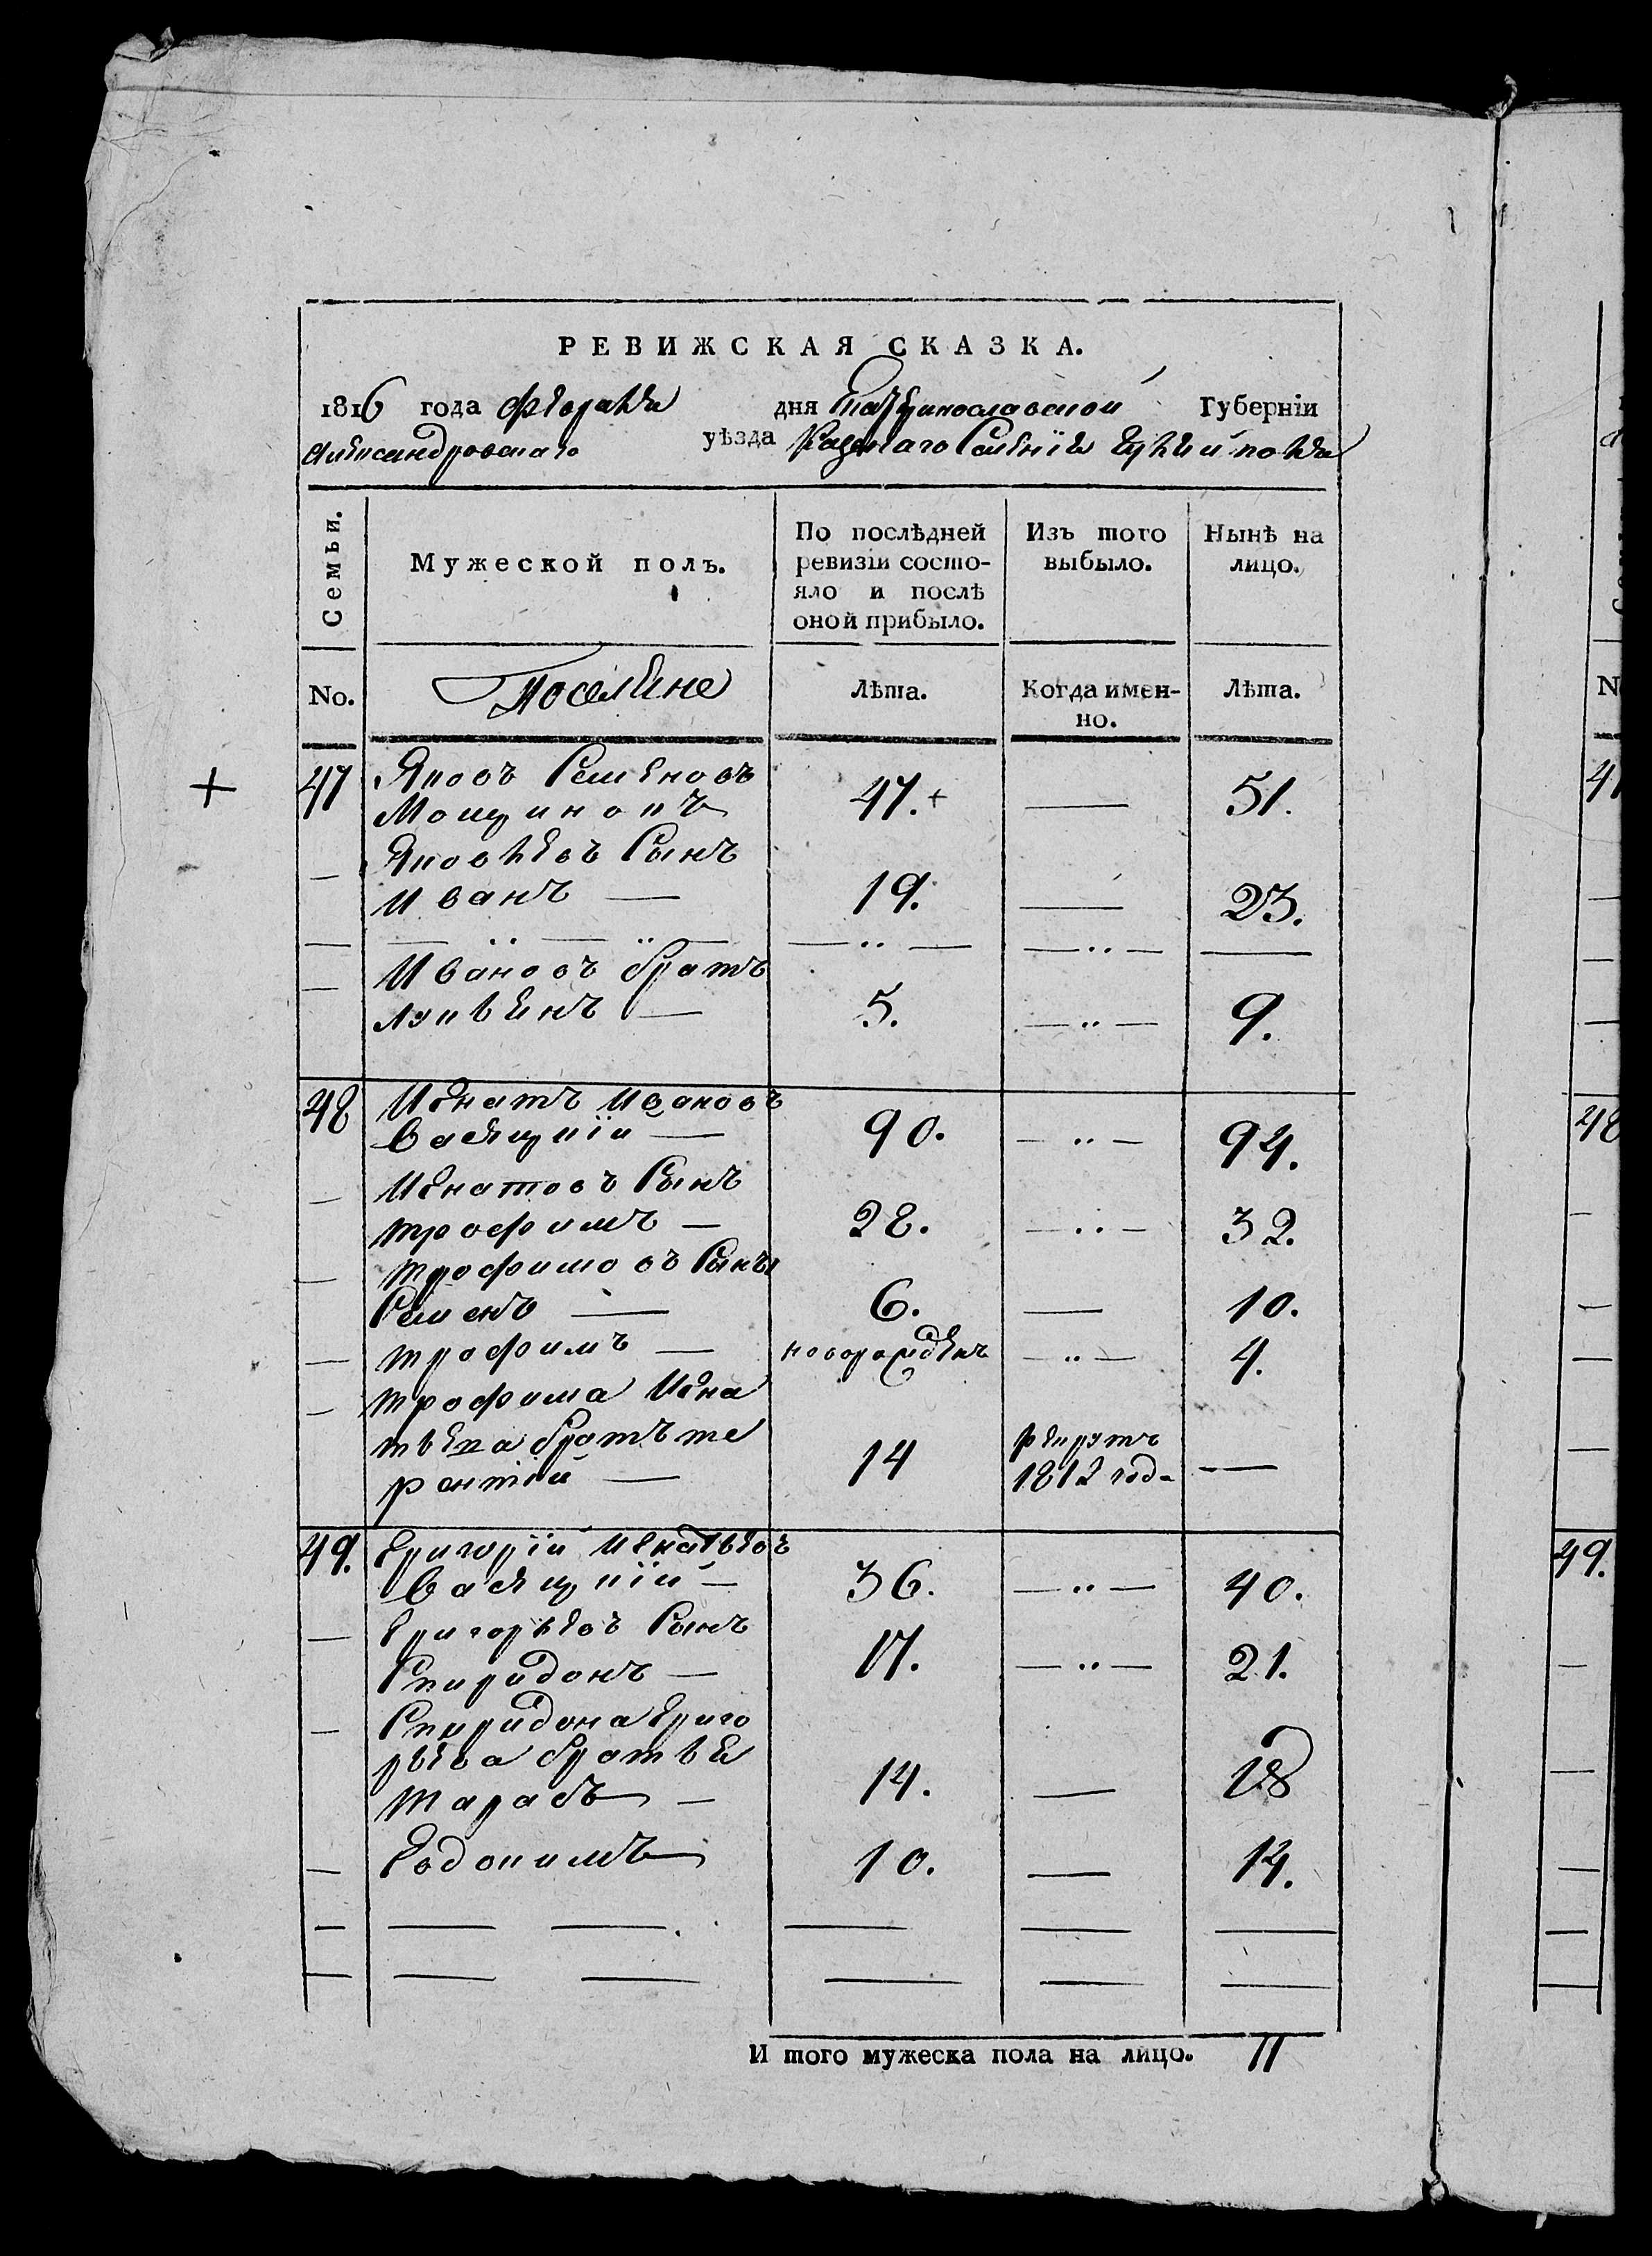 РЕВИЖСКАЯ СКАЗКА.
1816 года февраля дня Екатеринославской Губерніи
Александровскаго уѣзда Казеннаго Селенія
Семьи. Мужеской полъ. По послѣдней ревизіи состояло и послѣ оной прибыло. Изъ того выбыло. Нынѣ на лицо.
No. Поселяне Лѣта. Когда именно. Лѣта.
47 Яковъ Семеновъ
Мощинокъ 47.+ — 51.
— Яковлевъ Сынъ
Иванъ — 19. — 23.
— Ивановъ братъ
Лукьянъ — 5. — 9.
48 Игнатъ Ивановъ
90. — 94.
— Игнатовъ Сынъ
трофимъ — 28. — 32.
— трофимовъ Сынъ
Семенъ — 6. — 10.
— трофимъ — новорожденъ — 4.
— трофима Игна
тьева братъ те
рентій — 14 рекрутъ
1812 года —
49. Григорій Игнатьевъ
36. — 40.
— Григорьевъ Сынъ
Спиридонъ — 17. — 21.
— Спиридона Григо
рьева братья
тарасъ — 14. — 18
— Евдокимъ 10. — 14.
И того мужеска пола на лицо. 11
47
48
49.